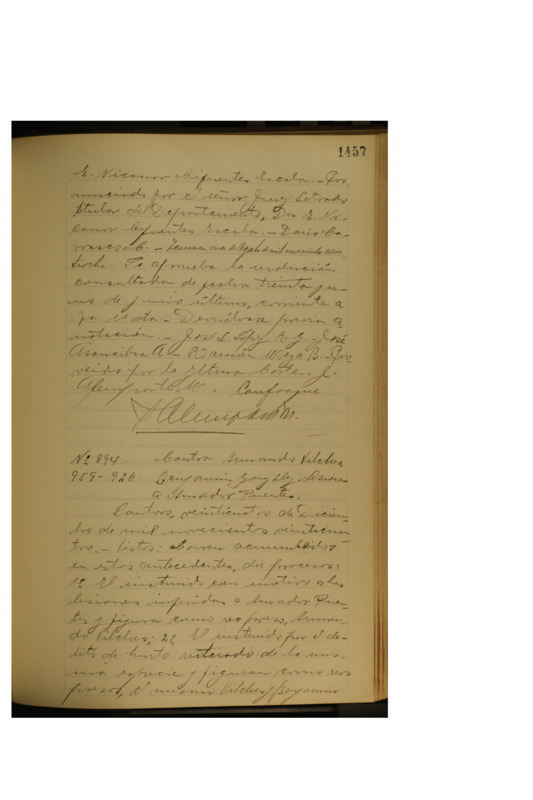 1457
E. Nicanor Cifuentes Escala. - Pro-
nunciada por el señor Juez Letrado
titular del Departamento, Don E. Ni-
canor Cifuentes Escala. - Dario Ca-
rrasco C. - Temuco, de mil novecientos vein-
tiocho. - Se aprueba la resolución
consultada de fecha treinta ju-
nio de junio último, corriente a
fs. - Devuélvase previa a-
notación. - José L. López R. G. - José
Arancibia A. - Ramón Meza B. - Pro-
veido por la Iltma. Corte. - J.
Alemparte M. Conforme
J Alemparte M.
Nº 894. - Contra Armando Vilches,
959 - 926. Benjamin González. Lesiones
a Amador Puentes.
Lautaro, veinticuatro de Diciem-
bre de mil novecientos veinticua-
tro. - Vistos: Corren acumulados
en estos antecedentes, dos procesos:
1º El instruido con motivo a las
lesiones inferidas a Amador Puen-
tes y figura como reo preso, Arman-
do Vilches; 2º El instruido por el de-
lito de hurto reiterado de la mis-
ma especie y figuran como reos
presos, el mismo Vilches y Benjamin